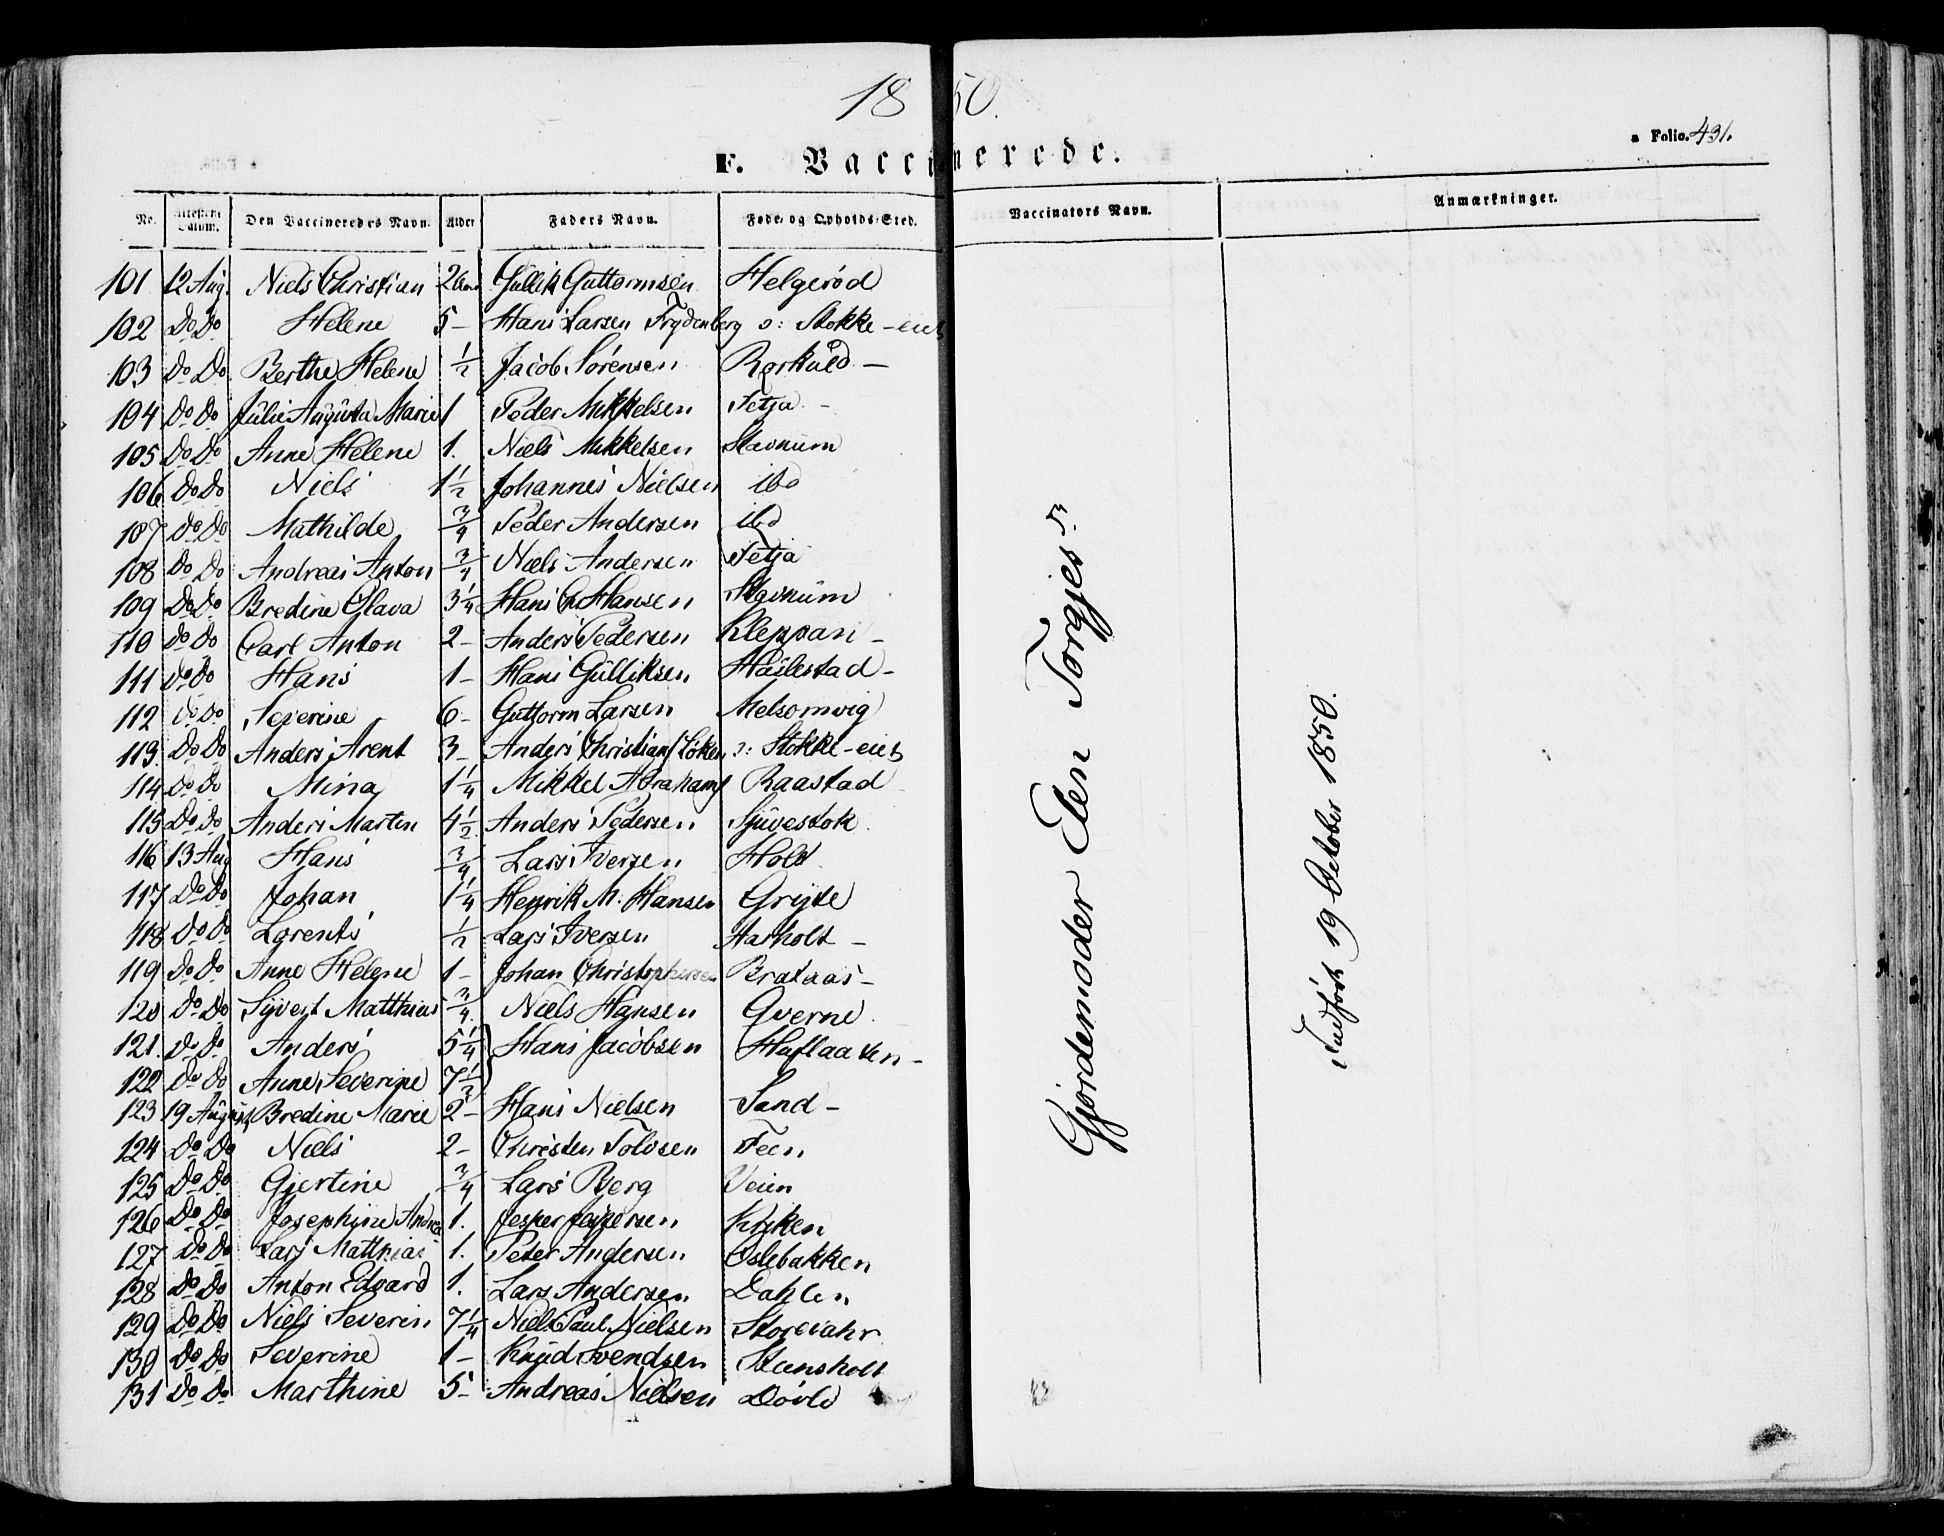 1850.
Folio. 431.
F. Vaccinerede.
No. Attestens Datum. Den Vaccineredes Navn. Alder Faders Navn. Føde- og Opholds-Sted. Vaccinators Navn. Anmærkninger.
101 12 Aug. Niels Christian 2 Gullik Guttormsen Helgerød
102 Do Do Helene 5 - Hans Larsen Frydenberg o: Stokke-eiet
103 Do Do Berthe Helene 1/2 Jacob Sørensen Rørkuld -
104 Do Do Julie Augusta Marie 1 Peder Mikkelsen Fetja -
105 Do Do Anne Helene 1. Niels Mikkelsen Stavnum
106 Do Do Niels 1 1/2 Johannes Nielsen ibd
107 Do Do Mathilde 3/4 Peder Andersen ibd
108 Do Do Andreas Anton 3/4 Niels Andersen Fetja
109 Do Do Bredine Olava 3 1/4 Hans Hansen Stavnum
110 Do Do Carl Anton 2 - Anders Pedersen Kleppan -
111 Do Do Hans 1 - Hans Gulliksen Haslestad -
112 Do Do Severine 6 - Guttorm Larsen Melsomvig
113. Do Do Anders Arent 3 - Anders Christians Løken o: Stokke-eiet
114 Do Do Mina 1 1/4 Mikkel Abrahams Raastad
115 Do Do Anders Martin 4 1/2 Anders Pedersen Sjuvestok.
116 13 Aug Hans 3/4 Lars Iversen Holt
117 Do Do Johan 1 1/4 Henrik M. Hansen Gryte
118 Do Do Lorents 1/2 Lars Iversen Aarholt -
119 Do Do Anne Helene 1 - Johan Christophersen Brataas -
120 Do Do Syvert Matthias 3/4. Niels Hansen Qverne.
121. Do Do Anders 5 1/4 Hans Jacobsen Haflaaten -
122 Do Do Anne Severine 7 1/2
123 19 August Bredine Marie 2 - Hans Nielsen Sand -
124 Do Do Niels 2 - Christen Tolvsen Feen
125 Do Do Gjertine 3/4 Lars Berg Veien
126 Do Do Josephine Andrea 1. Jesper Jespersen Krÿken
127 Do Do Lars Matthias 1. Peter Andersen Oslebakken
128 Do Do Anton Edvard 1. Lars Andersen Dahlen
129 Do Do Niels Severin 7 1/4 Niels Paul Nielsen Storevahr
130 Do Do Severine 1 - Knud Svendsen Steensholt
131 Do Do Marthine 5 - Andreas Nielsen Døvle
Gjordemoder Elen Torgjesdr
Indført 19 October 1850.